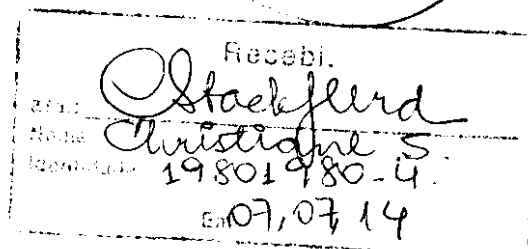 Recebi.
Nome Christiane S.
Identidade 19801980-4
Em 07,07,14